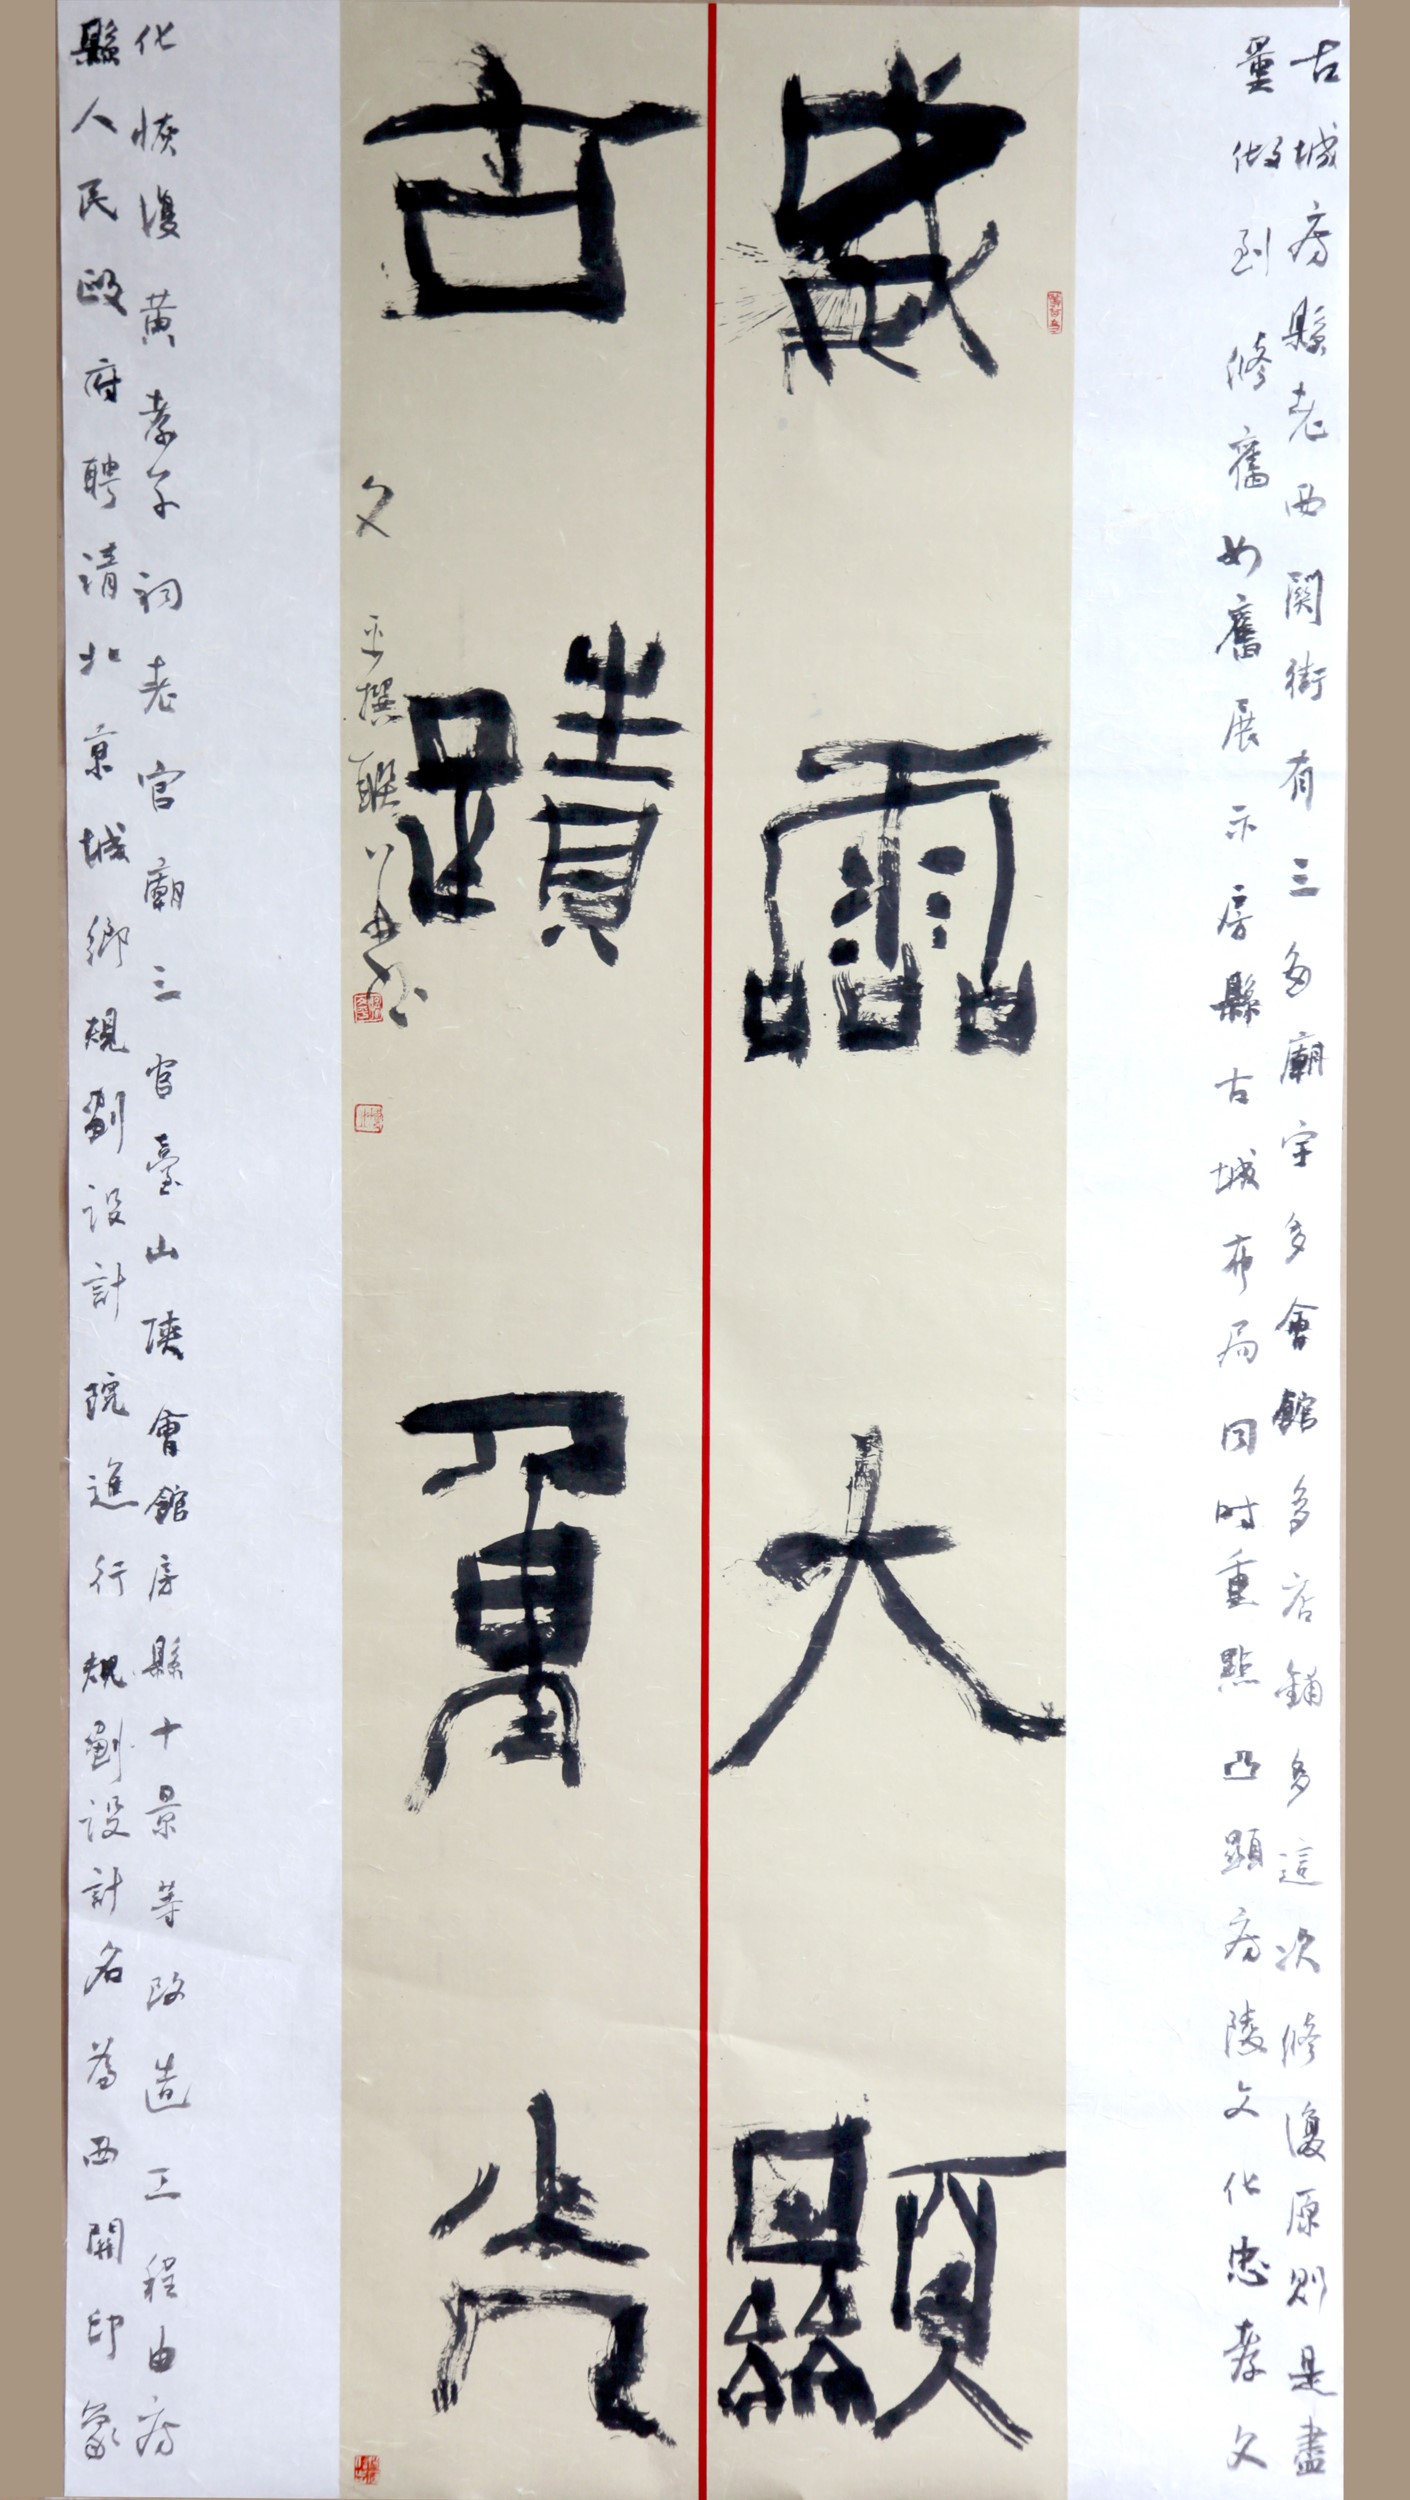 古城房縣老西関街有三多廟宇多會館多店鋪多這次修復原則是盡
量做到修舊如舊展示房縣古城布局同時重點凸顯房陵文化忠孝文
威霝大顯
古蹟重光
文平撰聯
化恢復黃孝子祠老官廟三官臺山陝會館房縣十景等改造工程由房
縣人民政府聘請北京城鄉規劃設計院進行規劃設計名為西関印象